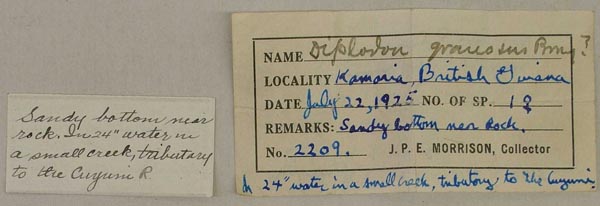 Sandy bottom near
rock. In 24" water in
a small creek, tributary
to the Cuyuni R.
NAME Diplodon granosus Brug?
LOCALITY Kamaria, British Guiana
DATE July 22, 1925 NO. OF SP. 1♀
REMARKS: Sandy bottom near Rock.
No. 2209. J. P. E. MORRISON, Collector
In 24" water in a small creek, tributary to the Cuyuni.